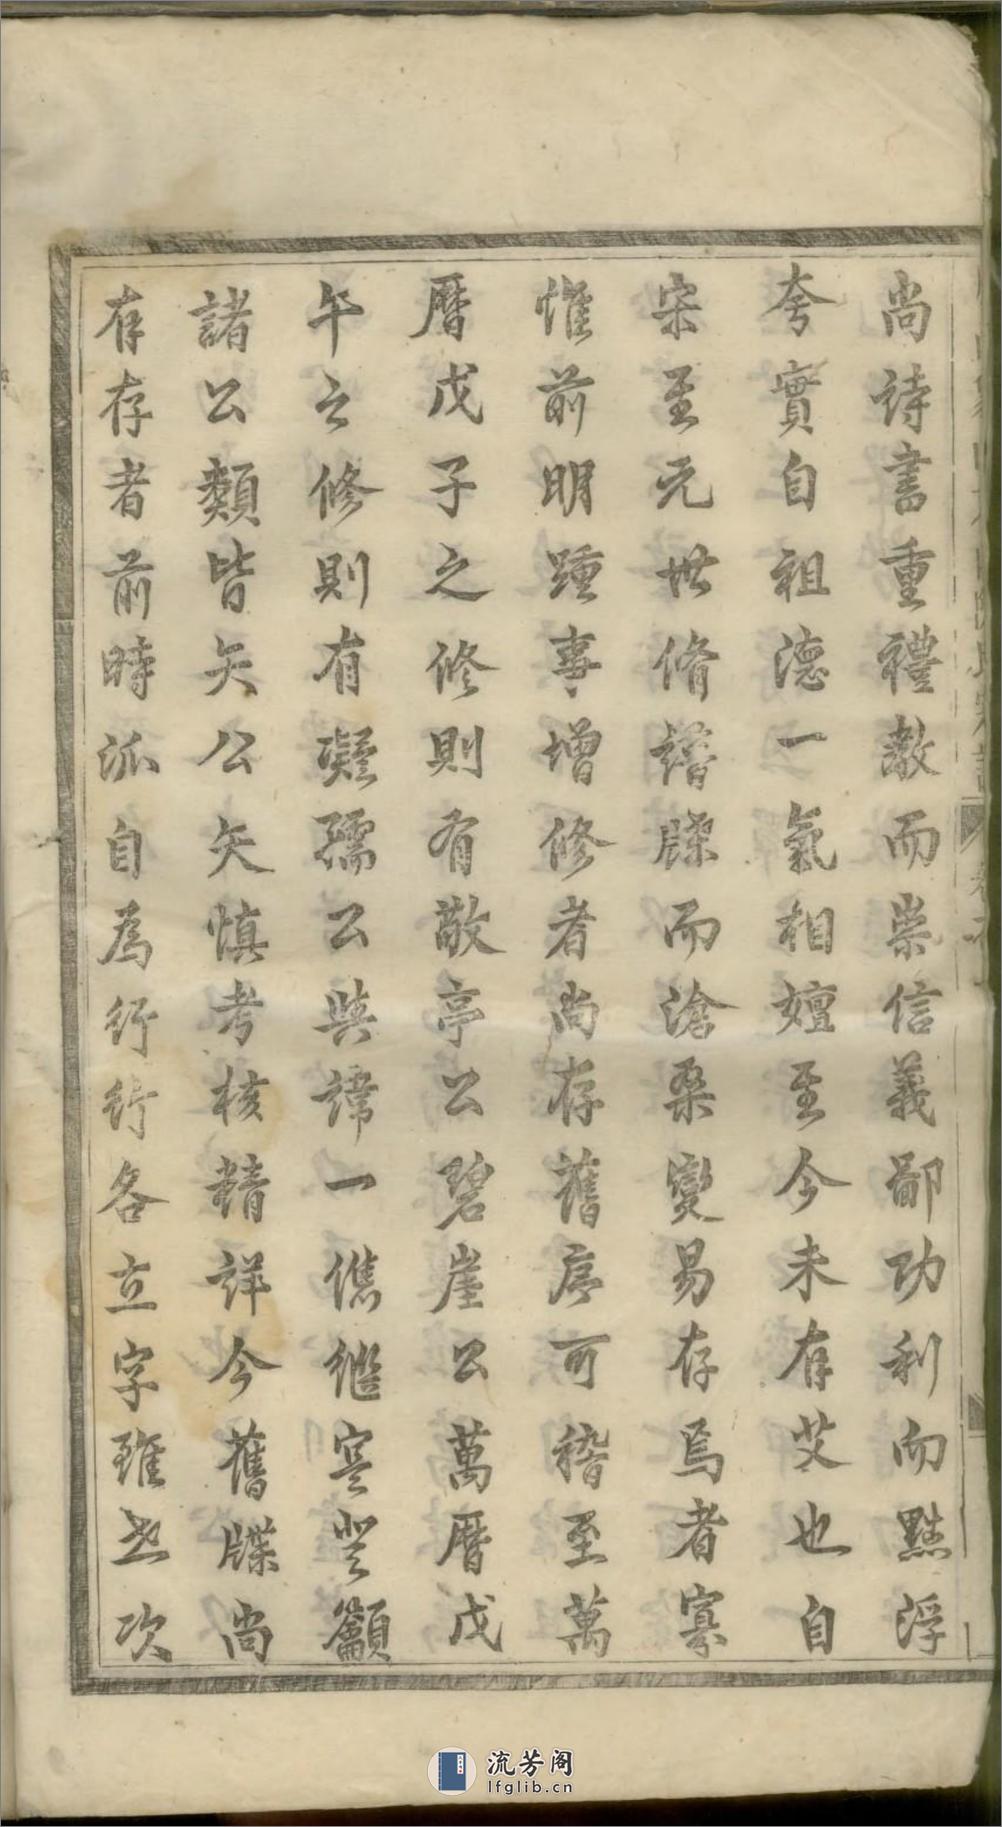 尚詩書重禮教而崇信義鄙功利而黜浮
夸實自祖德一氣相嬗至今未有艾也自
宋至元世脩譜牒而滄桑變易存焉者寡
惟前明踵事增修者尚存舊序可稽至萬
曆戊子之修則有敬亭公碧崖公萬曆戊
午之修則有凝孺公與諱一僬繼寔豐籲
諸公類皆矢公矢慎考核精詳今舊牒尚
有存者前時派自為行行各立字雖昭次
流芳阁
lfglib.cn